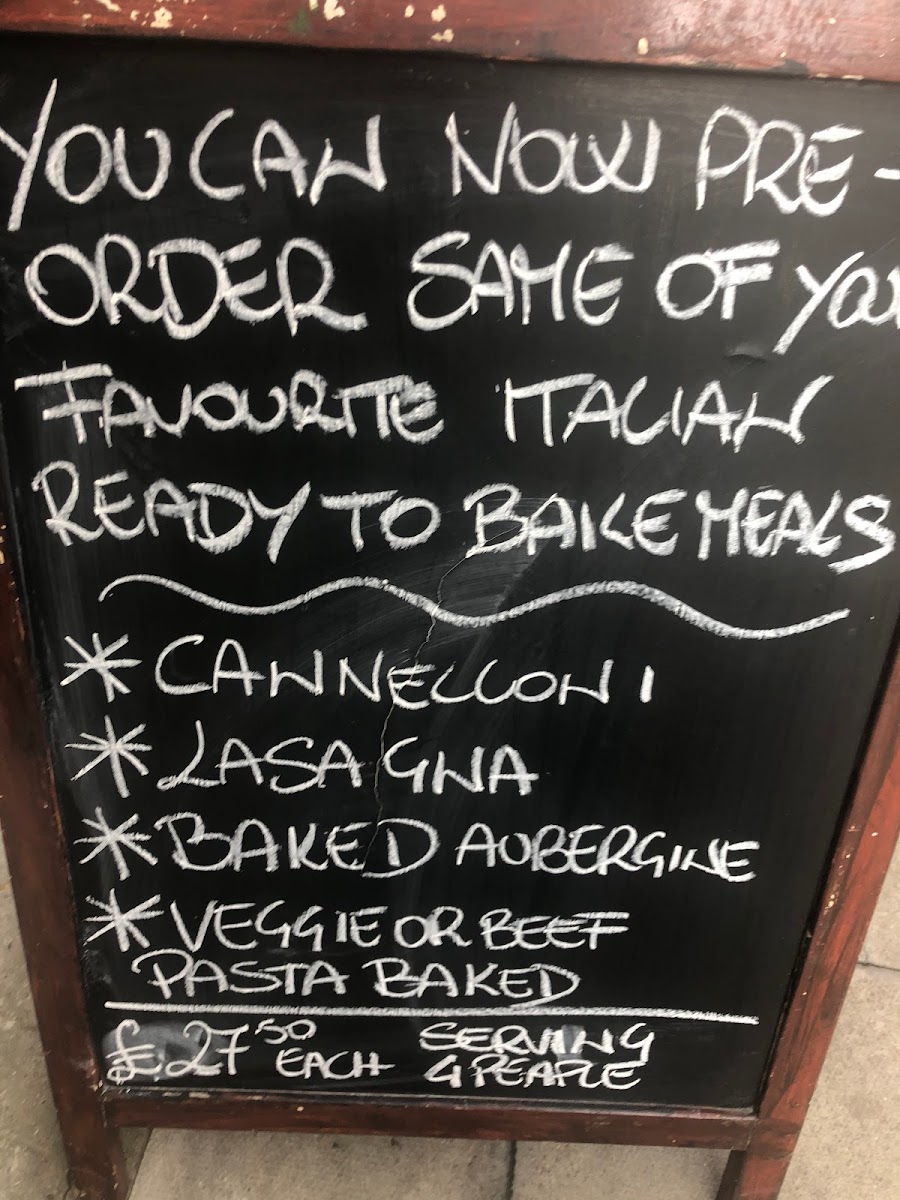 YOU CAN NOW PRE-
ORDER SAME OF YOUR
FAVOURITE ITALIAN
READY TO BAKE MEALS
* CANNELLONI
* LASAGNA
* BAKED AUBERGINE
* VEGGIE OR BEEF
PASTA BAKED
£27.50 EACH SERVING
4 PEAPLE